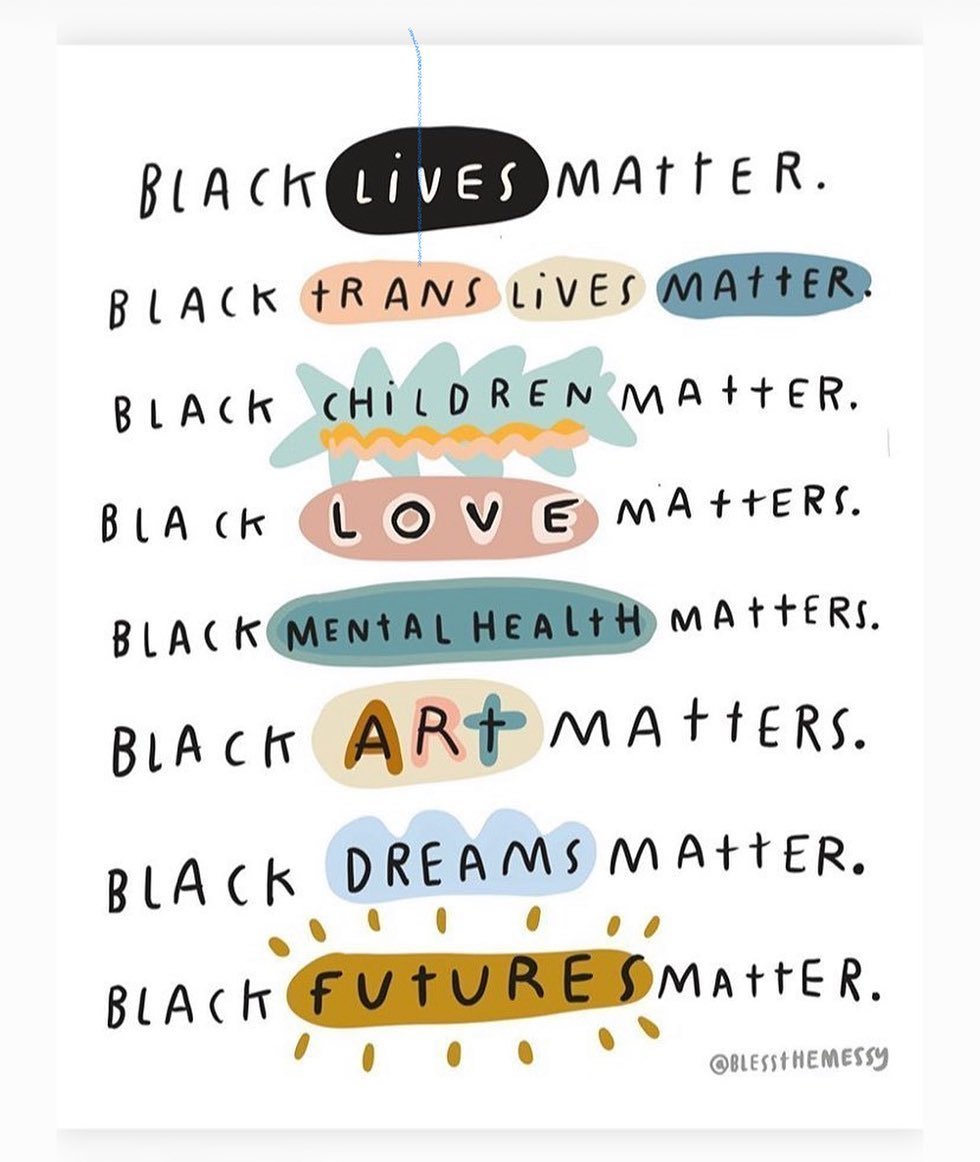 BLACK LiVES MATTER.
BLACK tRANS LiVES MATTER.
BLACK CHiLDREN MATTER.
BLACK LOVE MATTERS.
BLACK MENtAL HEALtH MATTERS.
BLACK ARt MATTERS.
BLACK DREAMS MATTER.
BLACK FUtURES MATTER.
@BLESStHEMESSY